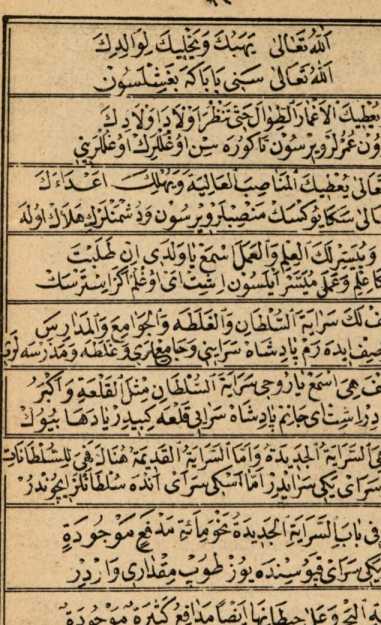 اَللّٰهُ تَعَالٰى يَهَبُكَ وَيُخَلِّيكَ لِوَالِدِكَ
اَللّٰهُ تَعَالٰى سَنِى بَابَاكَه بَغِشْلَسُونْ
يُعْطِيكَ الْاَعْمَارَ الطِّوَالَ حَتّٰى تَنْظُرَ اَوْلَادَ اَوْلَادِكَ
وُنْ عُمُرْلَرْ وِيرْسُونْ تَاكُورَه سِنْ اُوغُلْلَرِكْ اُوغُلْلَرِنِى
تَعَالٰى يُعْطِيكَ الْمَنَاصِبَ الْعَالِيَةَ وَيُهْلِكُ اَعْدَاءَكَ
الى سَكَا يُوكْسَكْ مَنْصِبْلَرْ وِيرْسُونْ وَدُشْمَنْلَرِكْ هَلَاكْ اُولَه
وَيُيَسِّرُ لَكَ الْعِلْمَ وَالْعَمَلَ اِسْمَعْ يَاوَلَدِى اِنْ طَلَبْتَ
كَا عِلْمِ وَعَمَلِى مُيَسَّرْ اَيْلَسُونْ اِشِتْ اَىْ اُوغْلُمْ اَكَرْ اِسْتَرْسَكْ
فُ لَكَ سَرَايَةَ السُّلْطَانِ وَالْغَلَطَه وَالْجَوَامِعَ وَالْمَدَارِسَ
صِفْ اِيدَه رَمْ پَادِشَاه سَرَايِنِى وَجَامِعْلَرِى وَغَلَطَه وَمَدْرَسَه لَرِى
فَ هِىَ اِسْمَعْ يَارُوحِى سَرَايَةُ السُّلْطَانِ مِثْلُ الْقَلْعَةِ وَاَكْبَرُ
دِرْ اِشِتْ اَىْ جَانِمْ پَادِشَاه سَرَايِى قَلْعَه كِبِيدِرْ يَادَهَا بُيُوكْ
هِىَ السَّرَايَةُ الْجَدِيدَةُ وَاَمَّا السَّرَايَةُ الْقَدِيمَةُ هُنَاكَ هِىَ لِلسُّلْطَانَاتِ
سَرَاىْ يَكِى سَرَايْدِرْ اَمَّا اَسْكِى سَرَاىْ اَنْدَه سُلْطَانْلَرْ اِيچُونْدُرْ
فِى بَابِ السَّرَايَةِ الْجَدِيدَةِ نَحْوُ مِائَةِ مَدْفَعٍ مَوْجُودَةٍ
يَكِى سَرَاىْ قَپُوسِنْدَه يُوزْ طُوپْ مِقْدَارِى وَارْدِرْ
وَعَلٰى حِيطَانِهَا اَيْضًا مَدَافِعُ كَثِيرَةٌ مَوْجُودَةٌ